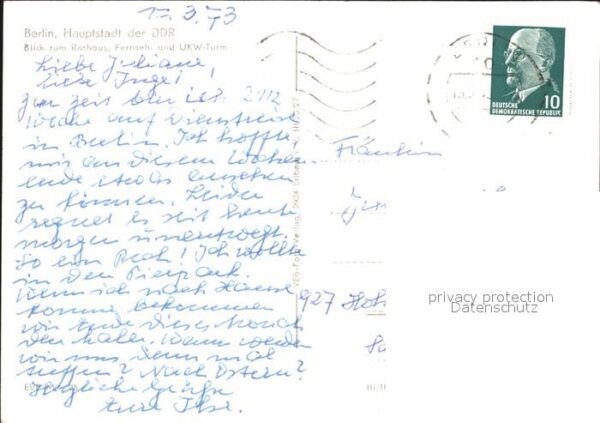 17.3.73
Berlin, Hauptstadt der DDR
Blick zum Rathaus, Fernseh- und UKW-Turm
Liebe Juliane,
liebe Inge!
Zur Zeit bin ich
Woche auf Dienstreise
in Berlin. Ich hoffte
mir an diesem Wochen-
ende etwas ansehen
zu können. Leider
regnet es seit heute
morgen unentwegt.
So ein Pech! Ich wollte
in den Tierpark.
Wenn ich nach Hause
komme bekommen
wir Ende dieses Monats
den Wann werden
wir uns denn mal
treffen? Nach Ostern?
Herzliche Grüße
Eure Ilse.
DEUTSCHE
DEMOKRATISCHE REPUBLIK
10
Fräulein
927 Hoh
privacy protection
Datenschutz